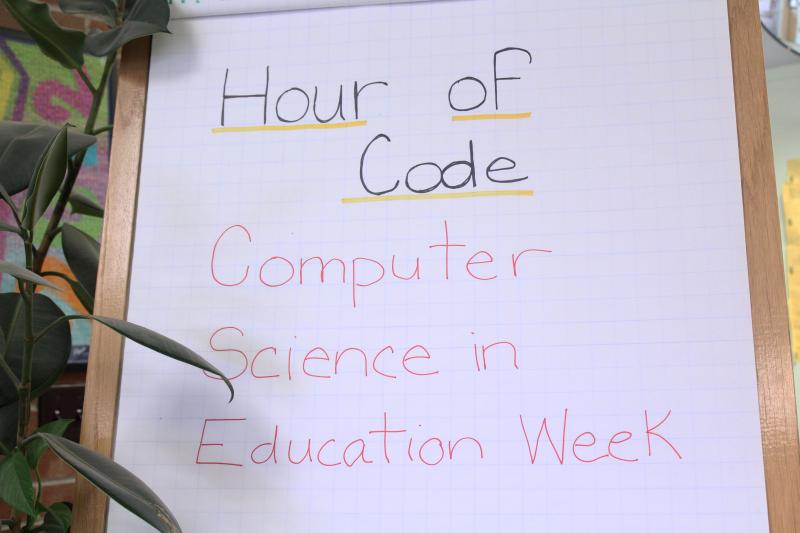 Hour of
Code
Computer
Science in
Education Week